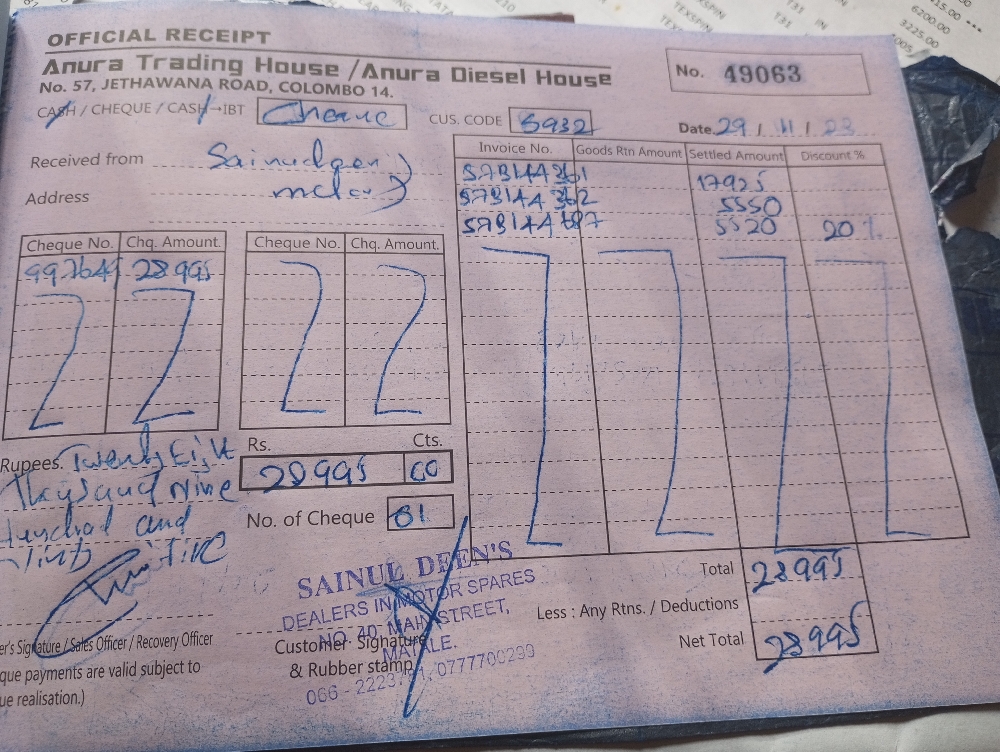 OFFICIAL RECEIPT
Anura Trading House / Anura Diesel House
No. 57, JETHAWANA ROAD, COLOMBO 14.
No. 49063
CASH / CHEQUE / CASH → IBT Cheque
CUS. CODE 5932
Date. 29 / 11 / 23
Received from Sainudeen
Address
Invoice No. Goods Rtn Amount Settled Amount Discount %
17925
5550
5520 20%
Cheque No. Chq. Amount. Cheque No. Chq. Amount.
997649 28995
Rs. Cts.
28995 00
Rupees. Twenty Eight
Thousand Nine
Hundred and
Ninty Five
No. of Cheque 01
Total 28995
Less : Any Rtns. / Deductions
Net Total 28995
SAINUL DEEN'S
DEALERS IN MOTOR SPARES
NO. 40, MAIN STREET,
MATALE.
er's Signature / Sales Officer / Recovery Officer
Customer Signature
& Rubber stamp
que payments are valid subject to
ue realisation.)